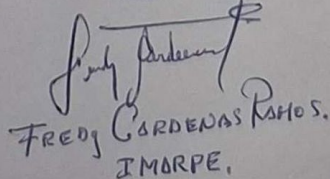 Fredy Cardenas R
FREDy CARDENAS RAMOS.
IMARPE.